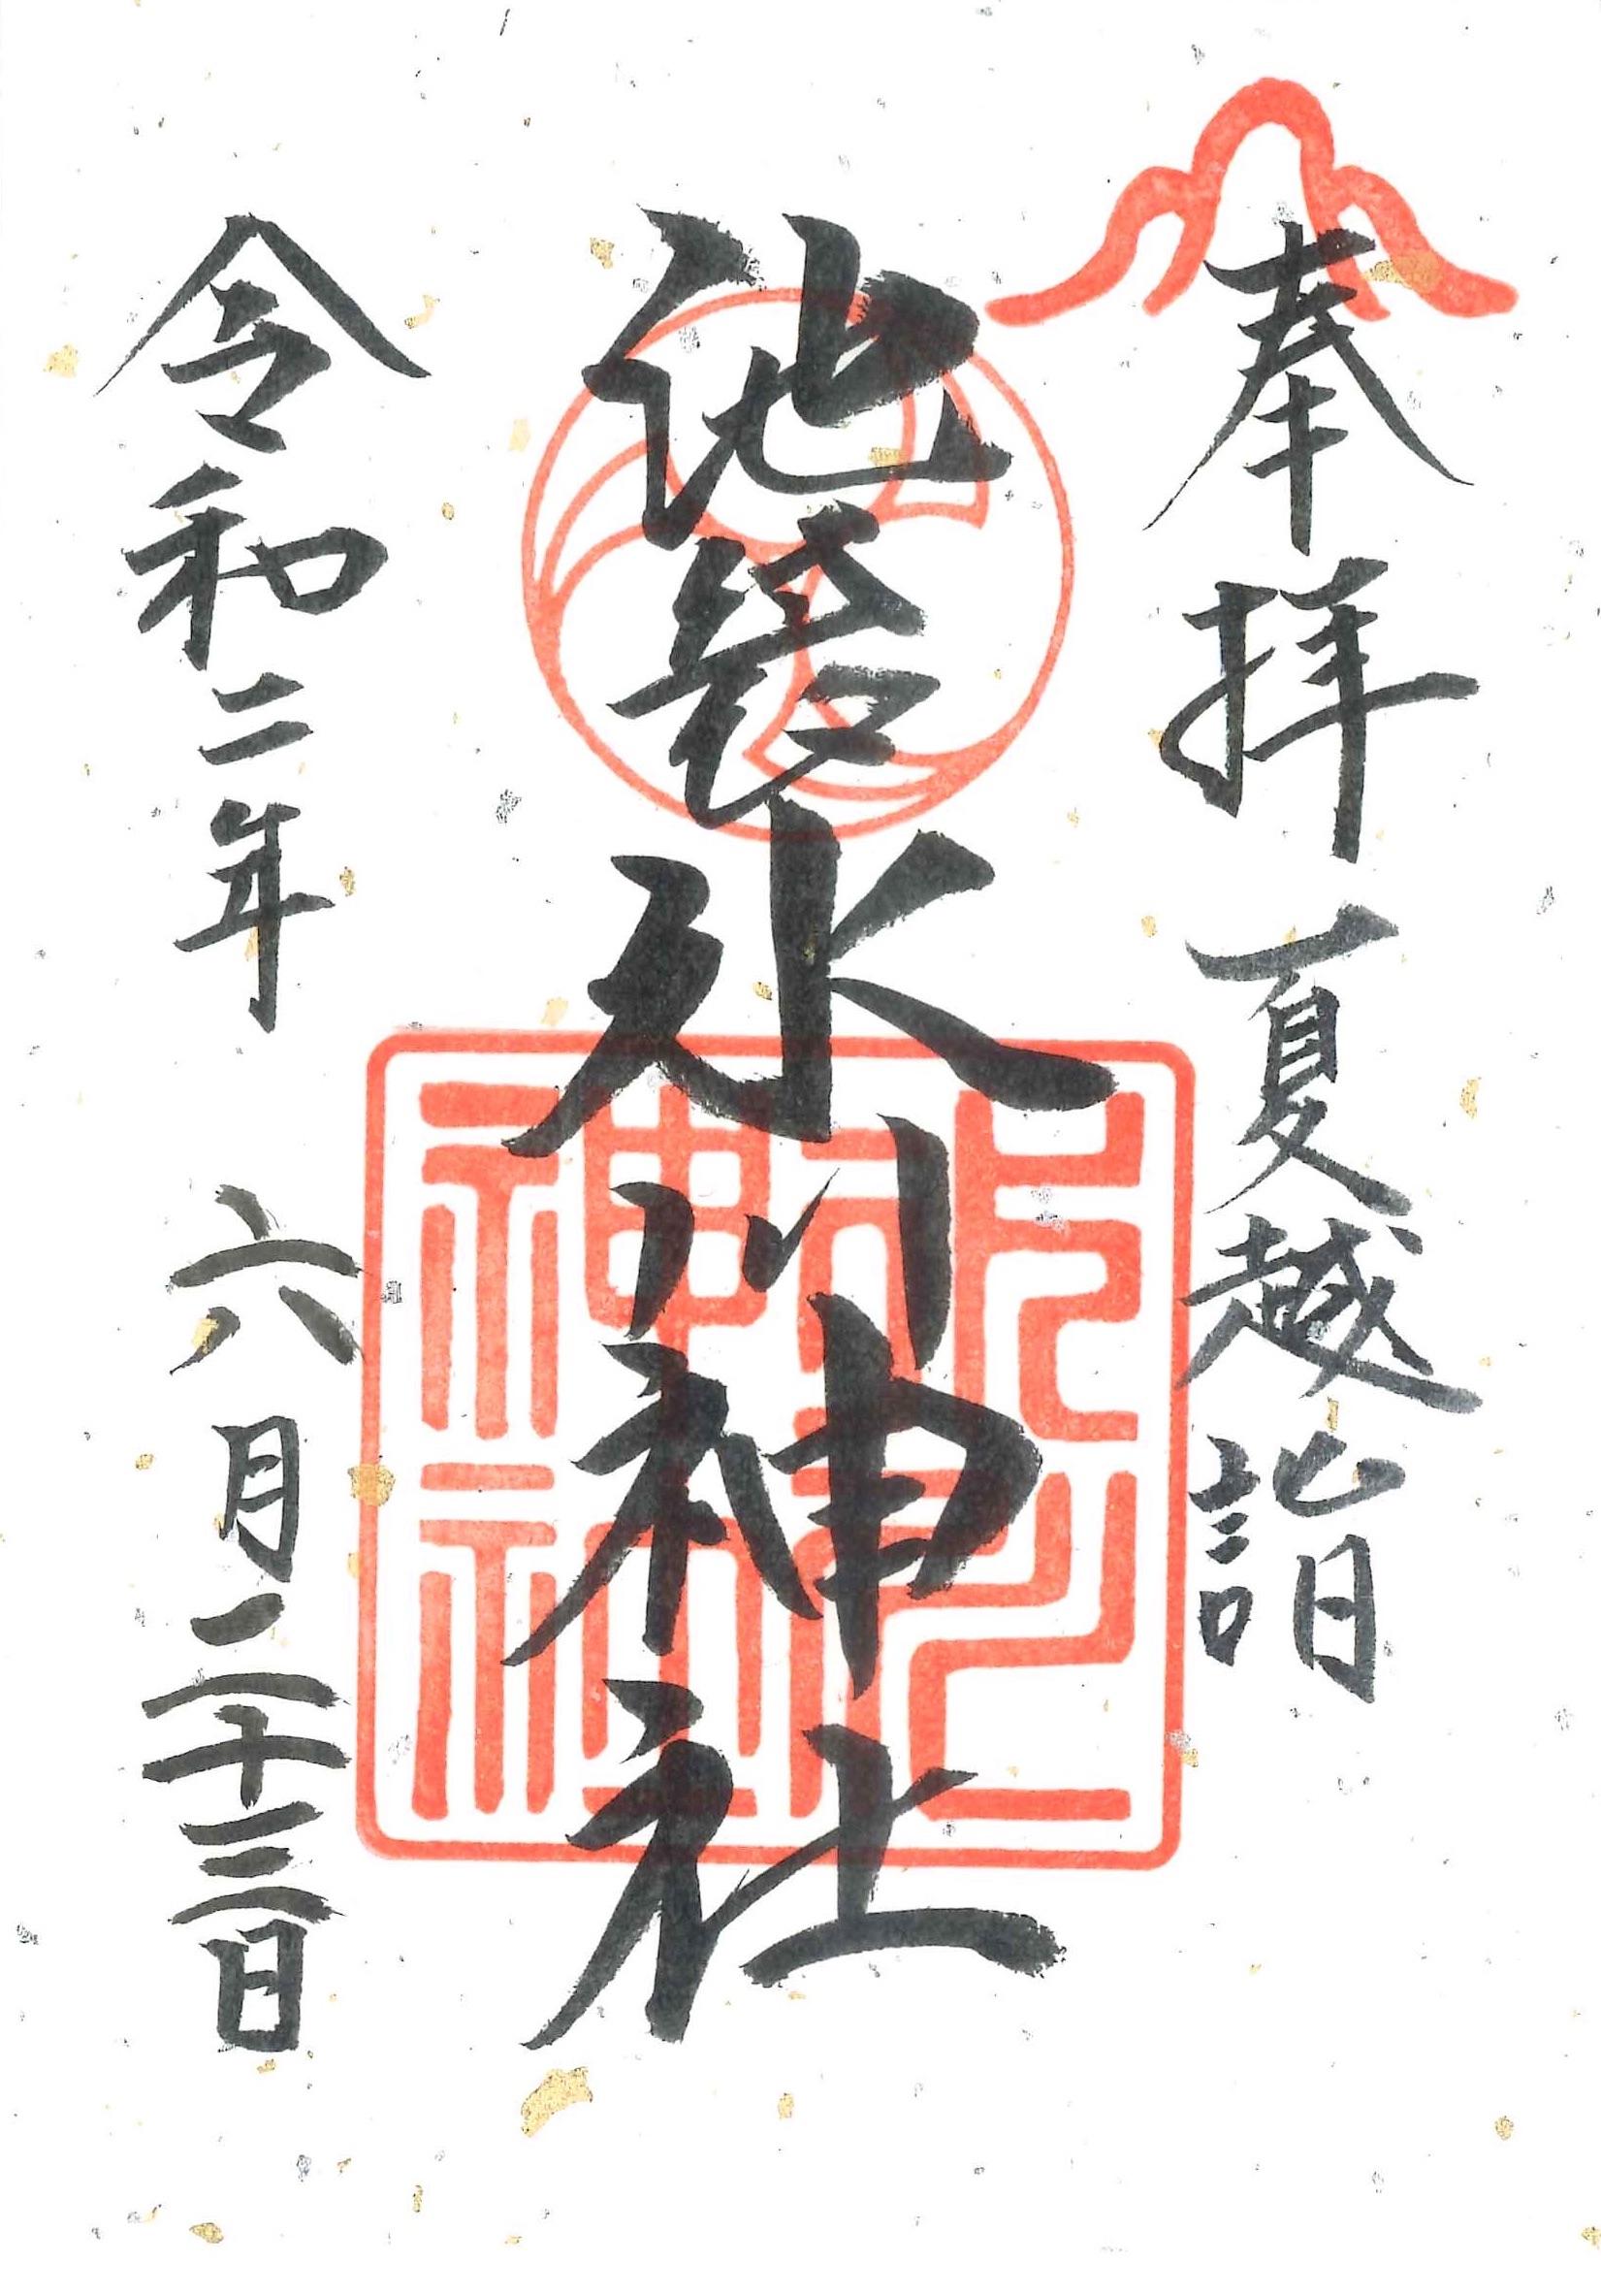 奉拝 夏越詣
池袋氷川神社
令和二年 六月二十三日
氷川神社